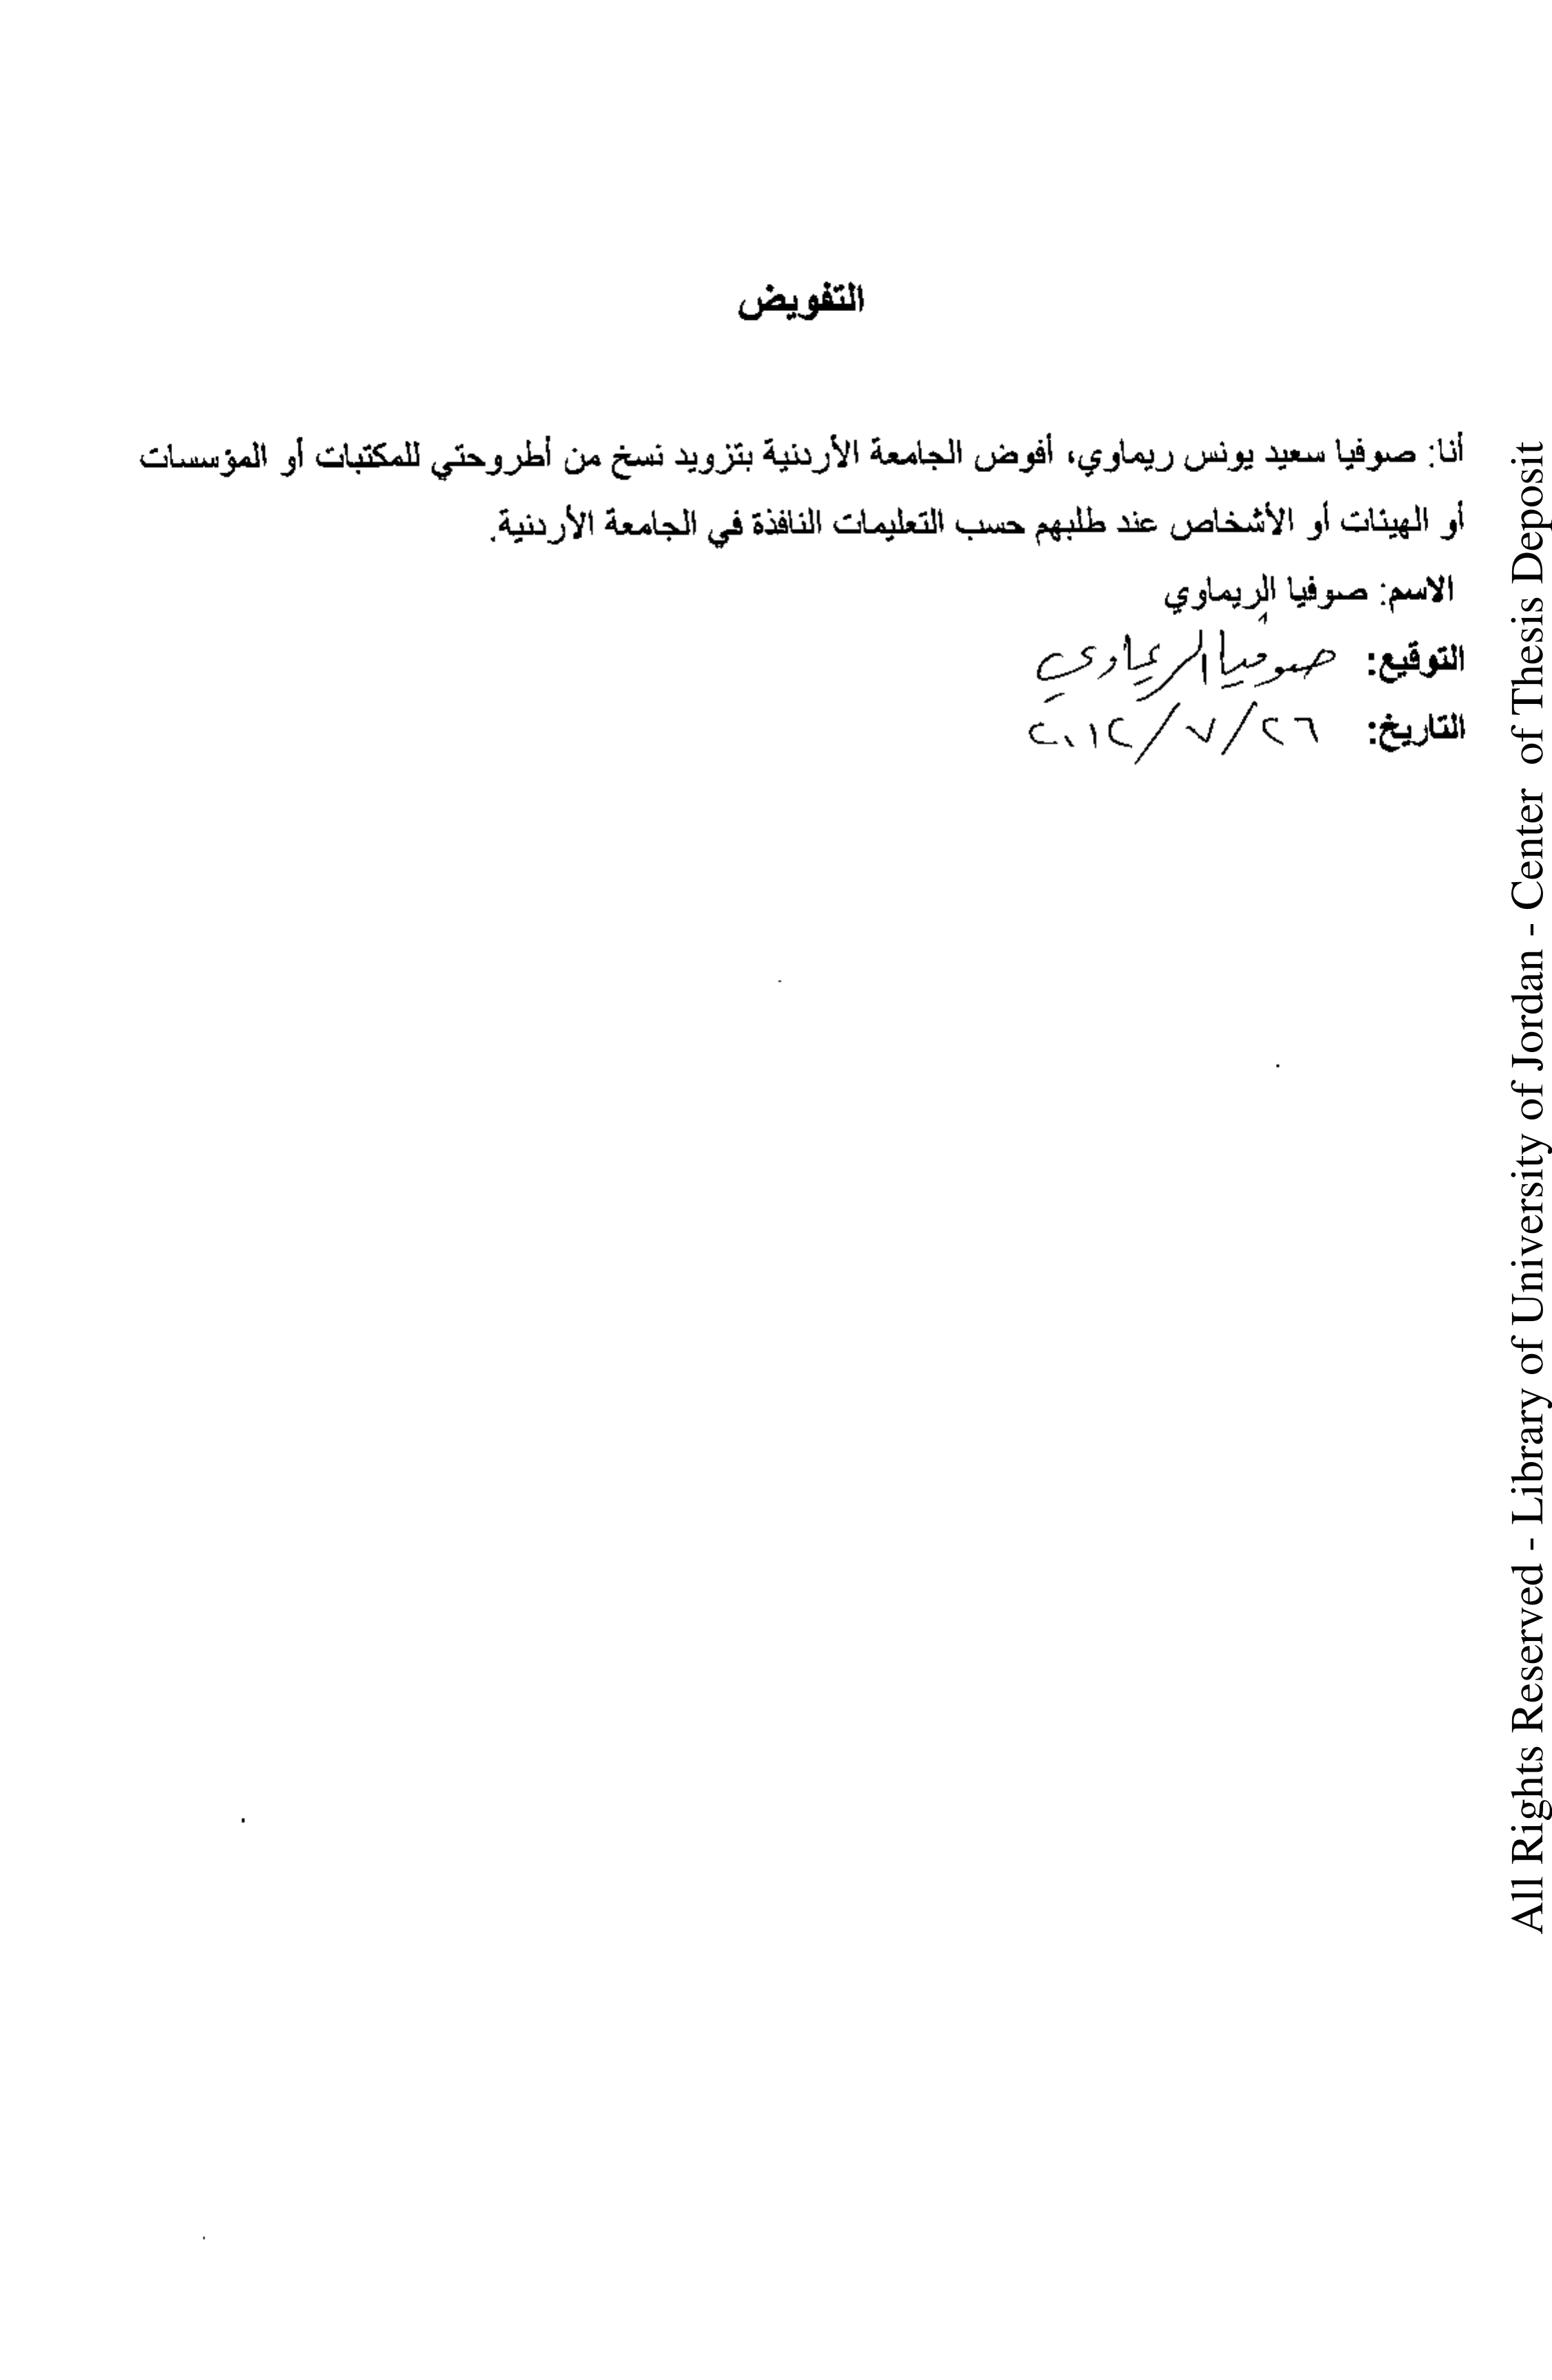 التفويض
أنا: صوفيا سعيد يونس ريماوي، أفوض الجامعة الأردنية بتزويد نسخ من أطروحتي للمكتبات أو المؤسسات
أو الهيئات أو الأشخاص عند طلبهم حسب التعليمات النافذة في الجامعة الأردنية.
الاسم: صوفيا الريماوي
التوقيع: صوفيا الريماوي
التاريخ: ٢٦/٧/٢٠١٢
All Rights Reserved - Library of University of Jordan - Center of Thesis Deposit